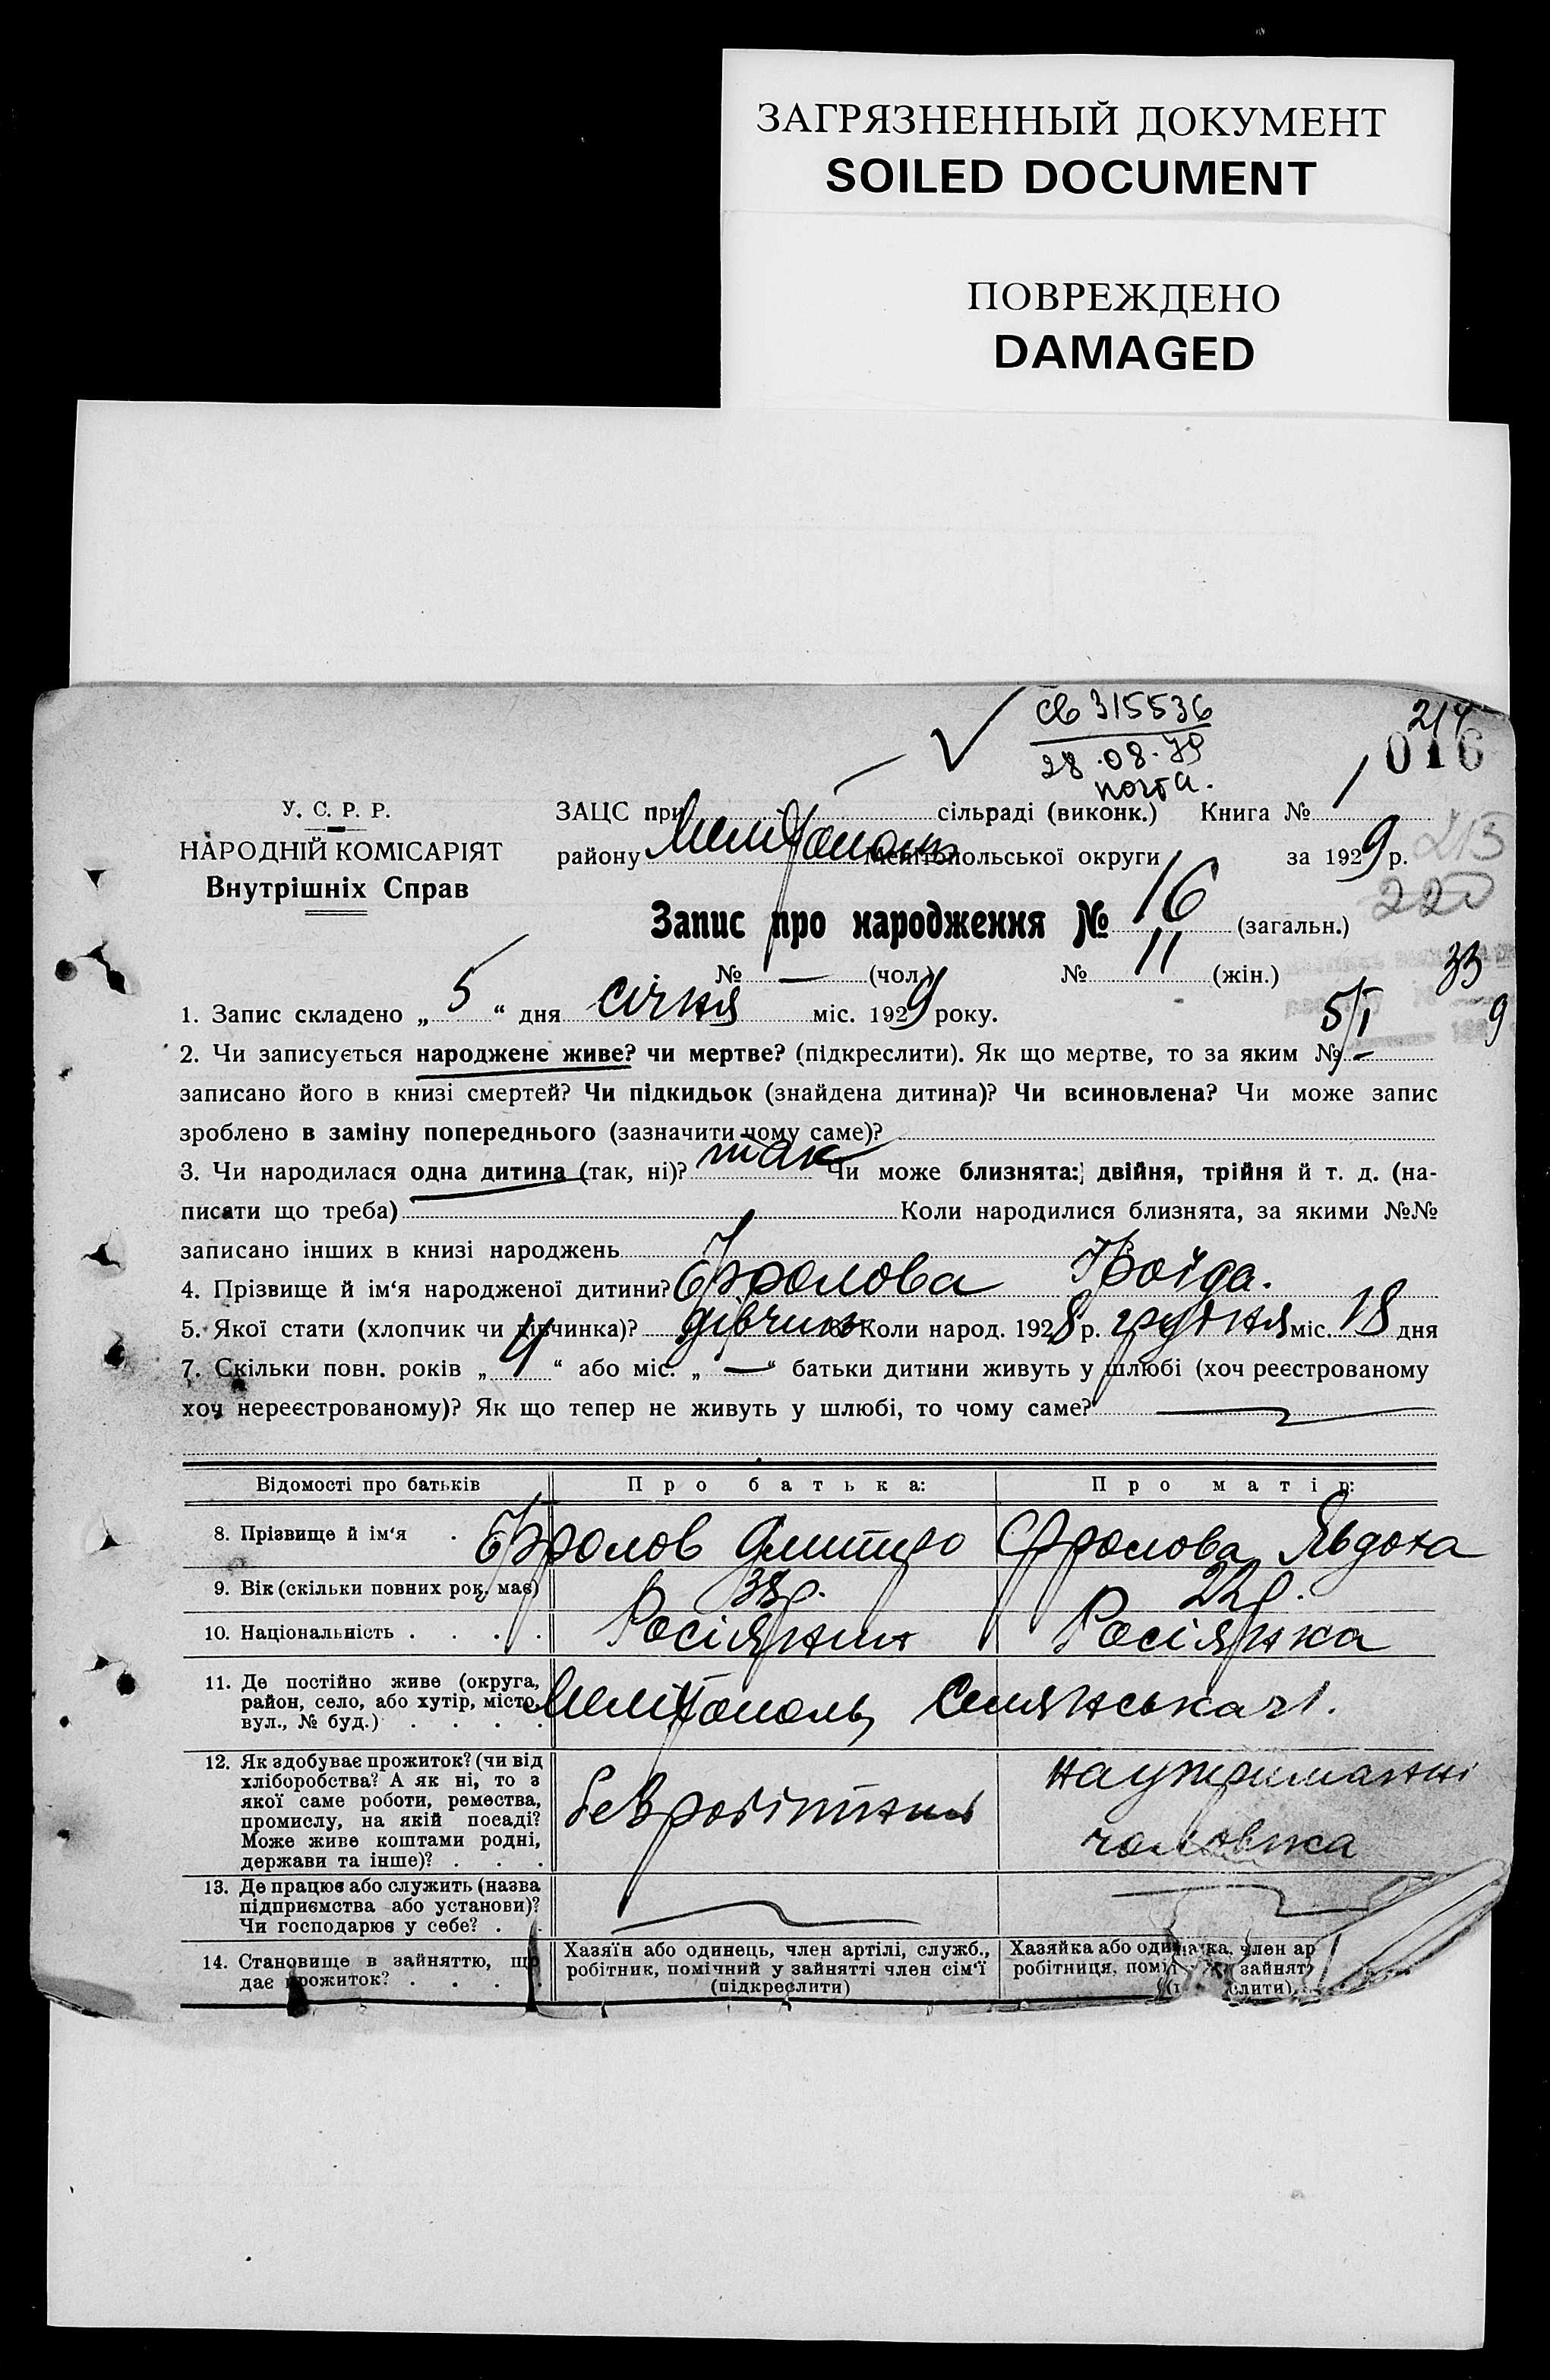 ЗАГРЯЗНЕННЫЙ ДОКУМЕНТ
SOILED DOCUMENT
ПОВРЕЖДЕНО
DAMAGED
св 315536
28.08.79
почта.
214
016
У. С. Р. Р.
НАРОДНІЙ КОМІСАРІЯТ
Внутрішніх Справ
ЗАЦС при сільраді (виконк.) Книга № 1
району Мелітополь Мелітопольської округи за 1929 р.
213
220
Запис про народження № 16 (загальн.)
№ — (чол.) № 11 (жін.)
33
1. Запис складено „ 5 “ дня січня міс. 1929 року.
5/I 9
2. Чи записується народжене живе? чи мертве? (підкреслити). Як що мертве, то за яким № —
записано його в книзі смертей? Чи підкидьок (знайдена дитина)? Чи всиновлена? Чи може запис
зроблено в заміну попереднього (зазначити чому саме)?
3. Чи народилася одна дитина (так, ні)? так Чи може близнята: двійня, трійня й т. д. (на-
писати що треба) Коли народилися близнята, за якими №№
записано інших в книзі народжень
4. Прізвище й ім‘я народженої дитини? Фролова Іроїда.
5. Якої стати (хлопчик чи дівчинка)? дівчина 6. Коли народ. 1928 р. грудня міс. 18 дня
7. Скільки повн. років „ 4 “ або міс. „ — “ батьки дитини живуть у шлюбі (хоч реєстрованому
хоч нереєстрованому)? Як що тепер не живуть у шлюбі, то чому саме?
Відомості про батьків Про батька: Про матір:
8. Прізвище й ім‘я . Фролов Дмитро Фролова Явдоха
9. Вік (скільки повних рок. має) 38 р. 22 р.
10. Національність . . . . Росіянин Росіянка
11. Де постійно живе (округа,
район, село, або хутір, місто,
вул., № буд.) . . . .
Мелітополь, Селянська 21.
12. Як здобуває прожиток? (чи від
хліборобства? А як ні, то з
якої саме роботи, ремества,
промислу, на якій посаді?
Може живе коштами родні,
держави та інше)? . . .
безробітний
на утриманні
чоловіка
13. Де працює або служить (назва
підприємства або установи)?
Чи господарює у себе? . .
14. Становище в зайняттю, що
дає прожиток? . . . .
Хазяїн або одинець, член артілі, служб.,
робітник, помічний у зайнятті член сім‘ї
(підкреслити)
Хазяйка або одиначка, член ар
робітниця, помі зайнят
слити)